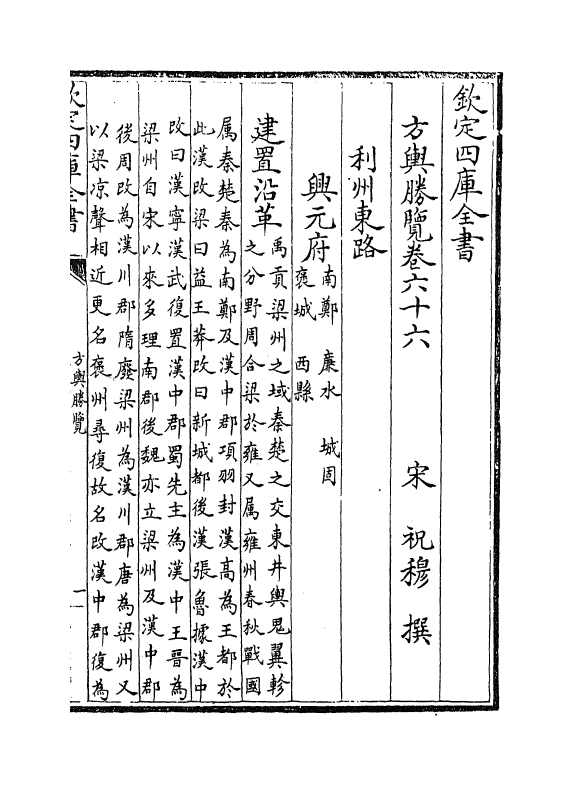 欽定四庫全書
方輿勝覽卷六十六
宋 祝穆 撰
利州東路
興元府
南鄭 廉水 城固
褒城 西縣
建置沿革
禹貢梁州之域秦楚之交東井輿鬼翼軫
之分野周合梁於雍又属雍州春秋戰國
属秦楚秦為南鄭及漢中郡項羽封漢高為王都於
此漢改梁曰益王莽改曰新城都後漢張魯據漢中
改曰漢寧漢武復置漢中郡蜀先主為漢中王晉為
梁州自宋以來多理南郡後魏亦立梁州及漢中郡
後周改為漢川郡隋廢梁州為漢川郡唐為梁州又
以梁凉聲相近更名褒州尋復故名改漢中郡復為
欽定四庫全書
方輿勝覽
一